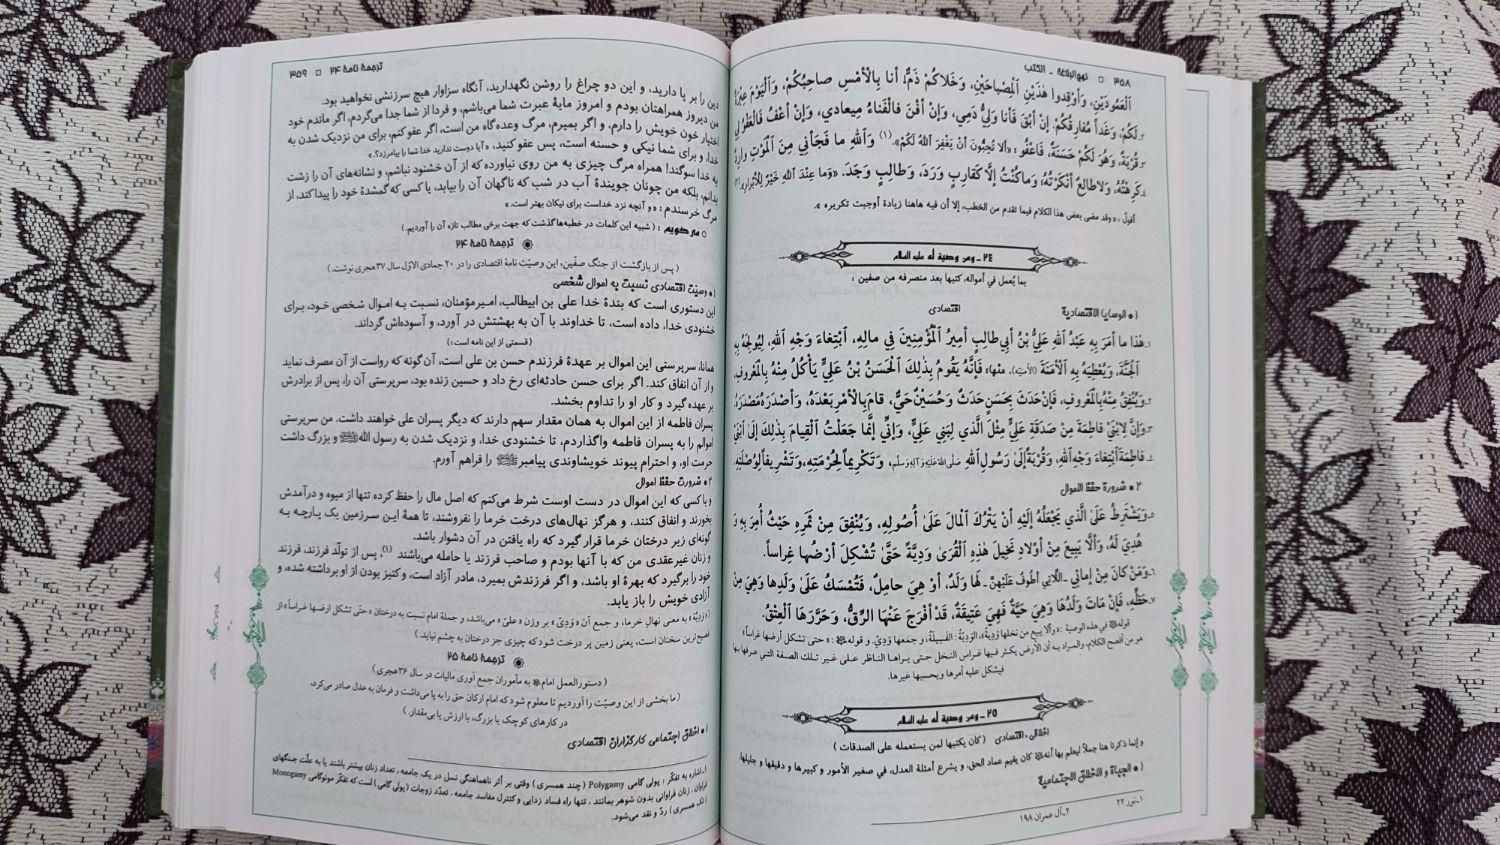 ۳۵۸ □ نهج البلاغة ـ الكتب
الْعَمُودَيْنِ، وَأَوْقِدُوا هٰذَيْنِ الْمِصْبَاحَيْنِ، وَخَلَاكُمْ ذَمٌّ! أَنا بِالْأَمْسِ صَاحِبُكُمْ، وَالْيَوْمَ عِبْرَةٌ
۲ـ لَكُمْ، وَغَداً مُفارِقُكُمْ. إِنْ أَبْقَ فَأَنا وَلِيُّ دَمِي، وَإِنْ أَفْنَ فَالْفَناءُ مِيعادِي، وَإِنْ أَعْفُ فَالْعَفْوُ لِي
۳ـ قُرْبَةٌ، وَهُوَ لَكُمْ حَسَنَةٌ، فَاعْفُو: «أَلا تُحِبُّونَ أَنْ يَغْفِرَ اللهُ لَكُمْ».(۱) وَاللهِ ما فَجَأَنِي مِنَ الْمَوْتِ وارِدٌ
۴ـ كَرِهْتُهُ، وَلاطالِعٌ أَنْكَرْتُهُ؛ وَماكُنْتُ إِلَّا كَقارِبٍ وَرَدَ، وَطالِبٍ وَجَدَ. «وَما عِنْدَ اللهِ خَيْرٌ لِلْأَبْرارِ».(۲)
أقولُ : «وقد مضى بعض هذا الكلام فيما تقدم من الخطب، إلا أن فيه هاهنا زيادة أوجبت تكريره ».
۲۴ ـ ومن وصية له عليه السلام
بما يُعمل في أمواله، كتبها بعد منصرفه من صفين :
۱ • الوصايا الاقتصادية اقتصادی
۱ـ هٰذا ما أَمَرَ بِهِ عَبْدُ اللهِ عَلِيُّ بْنُ أَبِي طالِبٍ أَمِيرُ الْمُؤْمِنِينَ فِي مالِهِ، ابْتِغاءَ وَجْهِ اللهِ، لِيُولِجَهُ بِهِ
الْجَنَّةَ، وَيُعْطِيَهُ بِهِ الْأَمَنَةَ . منْها: فَإِنَّهُ يَقُومُ بِذٰلِكَ الْحَسَنُ بْنُ عَلِيٍّ يَأْكُلُ مِنْهُ بِالْمَعْرُوفِ
۲ـ وَيُنْفِقُ مِنْهُ بِالْمَعْرُوفِ، فَإِنْ حَدَثَ بِحَسَنٍ حَدَثٌ وَحُسَيْنٌ حَيٌّ، قامَ بِالْأَمْرِ بَعْدَهُ، وَأَصْدَرَهُ مَصْدَرَهُ
۳ـ وَإِنَّ لِابْنَيْ فاطِمَةَ مِنْ صَدَقَةِ عَلِيٍّ مِثْلَ الَّذِي لِبَنِي عَلِيٍّ، وَإِنِّي إِنَّما جَعَلْتُ الْقِيامَ بِذٰلِكَ إِلَى ابْنَيْ
۴ـ فاطِمَةَ ابْتِغاءَ وَجْهِ اللهِ، وَقُرْبَةً إِلَىٰ رَسُولِ اللهِ صَلَّى اللهُ عَلَيْهِ وَآلِهِ وَسَلَّم، وَتَكْرِيماً لِحُرْمَتِهِ، وَتَشْرِيفاً لِوُصْلَتِهِ.
۲ • ضرورة حفظ الاموال
۵ـ وَيَشْتَرِطُ عَلَىٰ الَّذِي يَجْعَلُهُ إِلَيْهِ أَنْ يَتْرُكَ الْمَالَ عَلَىٰ أُصُولِهِ، وَيُنْفِقَ مِنْ ثَمَرِهِ حَيْثُ أُمِرَ بِهِ وَ
هُدِيَ لَهُ، وَأَلَّا يَبِيعَ مِنْ أَوْلادِ نَخِيلِ هٰذِهِ الْقُرَىٰ وَدِيَّةً حَتَّىٰ تُشْكِلَ أَرْضُها غِراساً.
۶ـ وَمَنْ كانَ مِنْ إِمائِي ـ اللَّاتِي أَطُوفُ عَلَيْهِنَّ ـ لَها وَلَدٌ، أَوْ هِيَ حامِلٌ، فَتُمْسَكُ عَلَىٰ وَلَدِها وَهِيَ مِنْ
۷ـ حَظِّهِ، فَإِنْ ماتَ وَلَدُها وَهِيَ حَيَّةٌ فَهِيَ عَتِيقَةٌ، قَدْ أَفْرَجَ عَنْها الرِّقُّ، وَحَرَّرَها الْعِتْقُ.
قوله في هذه الوصية : «وألا يبيع من نخلها وَدِيةً»، الوَدِيَّةُ : الفَسِيلَةُ، وجمعها وَدِيّ. و قوله : «حتى تشكل أرضها غراساً»
هو من أفصح الكلام، والمراد به أن الأرض يكثر فيها غراس النخل حتى يراها الناظر على غير تلك الصفة التي عرفها بها
فيشكل عليه أمرها ويحسبها غيرها.
۲۵ ـ ومن وصية له عليه السلام
اخلاقی، اقتصادی (كان يكتبها لمن يستعمله على الصدقات )
و إنما ذكرنا هنا جملاً ليعلم بها أنه كان يقيم عماد الحق، و يشرع أمثلة العدل، في صغير الأمور و كبيرها و دقيقها و جليلها.
۱ • الجباة و الاخلاق الاجتماعية
۱ـ نور ۲۲
۲ـ آل عمران ۱۹۸
ترجمهٔ نامهٔ ۲۴ □ ۳۵۹
دین را بر پا دارید، و این دو چراغ را روشن نگهدارید، آنگاه سزاوار هیچ سرزنشی نخواهید بود.
من دیروز همراهتان بودم و امروز مایهٔ عبرت شما می‌باشم، و فردا از شما جدا می‌گردم، اگر ماندم خود
اختیار خون خویش را دارم، و اگر بمیرم، مرگ وعده‌گاه من است، اگر عفو کنم، برای من نزدیک شدن به
خدا، و برای شما نیکی و حسنه است، پس عفو کنید، «آیا دوست ندارید خدا شما را بیامرزد؟.»
به خدا سوگند! همراه مرگ چیزی به من روی نیاورده که از آن خشنود نباشم، و نشانه‌های آن را زشت
بدانم، بلکه من چونان جویندهٔ آب در شب که ناگهان آن را بیابد، یا کسی که گمشدهٔ خود را پیدا کند، از
مرگ خرسندم : «و آنچه نزد خداست برای نیکان بهتر است.»
○ می‌گویم : ( شبیه این کلمات در خطبه‌ها گذشت که جهت برخی مطالب تازه آن را آوردیم.)
ترجمهٔ نامهٔ ۲۴
( پس از بازگشت از جنگ صفّین، این وصیّت نامهٔ اقتصادی را در ۲۰ جمادی الاوّل سال ۳۷ هجری نوشت.)
۱ • وصیّت اقتصادی نسبت به اموال شخصی
این دستوری است که بندهٔ خدا علی بن ابیطالب، امیرمؤمنان، نسبت به اموال شخصی خود، برای
خشنودی خدا، داده است، تا خداوند با آن به بهشتش در آورد، و آسوده‌اش گرداند.
( قسمتی از این نامه است )
همانا، سرپرستی این اموال بر عهدهٔ فرزندم حسن بن علی است، آن گونه که رواست از آن مصرف نماید
و از آن انفاق کند. اگر برای حسن حادثه‌ای رخ داد و حسین زنده بود، سرپرستی آن را، پس از برادرش
بر عهده گیرد و کار او را تداوم بخشد.
پسران فاطمه از این اموال به همان مقدار سهم دارند که دیگر پسران علی خواهند داشت. من سرپرستی
اموالم را به پسران فاطمه واگذاردم، تا خشنودی خدا، و نزدیک شدن به رسول الله ﷺ و بزرگ داشت
حرمت او، و احترام پیوند خویشاوندی پیامبر ﷺ را فراهم آورم.
۲ • ضرورت حفظ اموال
و با کسی که این اموال در دست اوست شرط می‌کنم که اصل مال را حفظ کرده تنها از میوه و درآمدش
بخورند و انفاق کنند، و هرگز نهال‌های درخت خرما را نفروشند، تا همهٔ این سرزمین یک پارچه به
گونه‌ای زیر درختان خرما قرار گیرد که راه یافتن در آن دشوار باشد.
و زنان غیرعقدی من که با آنها بودم و صاحب فرزند یا حامله می‌باشند (۱)، پس از تولّد فرزند، فرزند
خود را برگیرد که بهرهٔ او باشد، و اگر فرزندش بمیرد، مادر آزاد است، و کنیز بودن از او برداشته شده، و
آزادی خویش را باز یابد.
( «وَدِیَّة» به معنی نهال خرما، و جمع آن «وَدِیّ» بر وزن «علیّ» می‌باشد، و جملهٔ امام نسبت به درختان «حتّی تشکل ارضها غراساً» از
فصیح‌ترین سخنان است، یعنی زمین پر درخت شود که چیزی جز درختان به چشم نیاید. )
ترجمهٔ نامهٔ ۲۵
( دستورالعمل امام به مأموران جمع آوری مالیات در سال ۳۶ هجری )
( ما بخشی از این وصیّت را آوردیم تا معلوم شود که امام ارکان حق را به پا می‌داشت و فرمان به عدل صادر می‌کرد،
در کارهای کوچک یا بزرگ، با ارزش یا بی‌مقدار. )
۱ • اخلاق اجتماعی کارگزاران اقتصادی
۱ـ اشاره به تفکّر : پولی گامی Polygamy ( چند همسری ) وقتی بر اثر ناهماهنگی نسل در یک جامعه، تعداد زنان بیشتر باشند یا به علّت جنگهای
فراوان، زنان فراوانی بدون شوهر بمانند، تنها راه فساد زدایی و کنترل مفاسد جامعه، تعدّد زوجات ( پولی گامی ) است که تفکّر مونوگامی Monogamy
( تک همسری ) ردّ و نقد می‌شود.